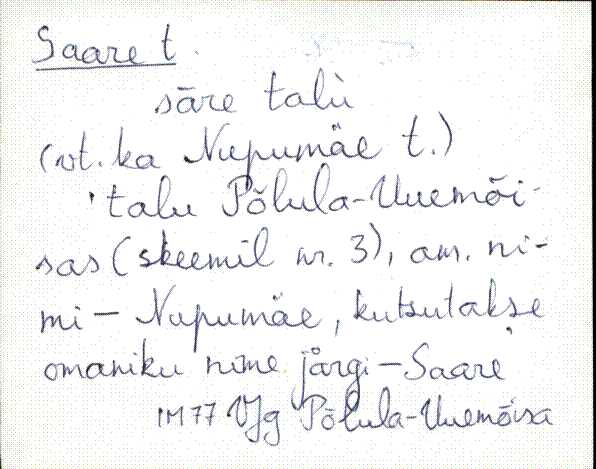 Saare t.
sāre talù
(vt. ka Nupumäe t.)
'talu Põlula-Uuemõi-
sas (skeemil nr. 3), am. ni-
mi – Nupumäe, kutsutakse
omaniku nime järgi – Saare
IM 77 VJg Põlula-Uuemõisa